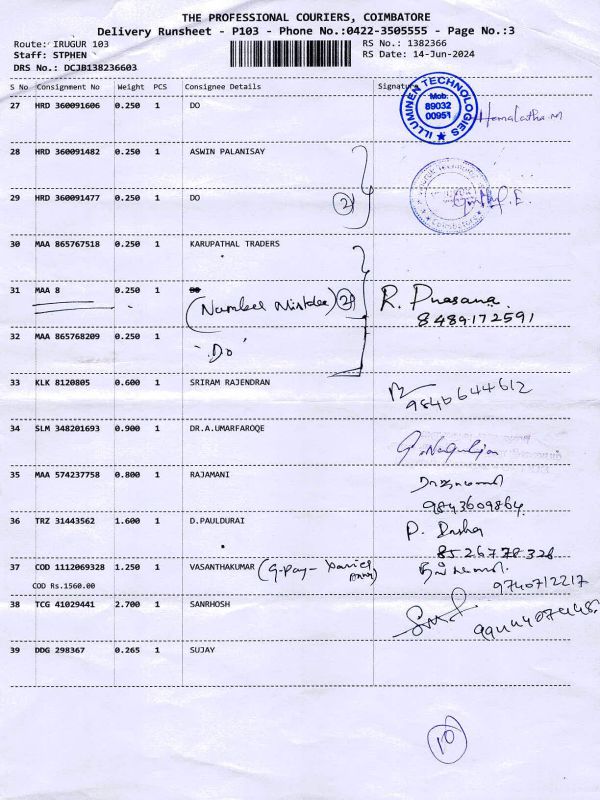 THE PROFESSIONAL COURIERS, COIMBATORE
Delivery Runsheet - P103 - Phone No.:0422-3505555 - Page No.:3
Route: IRUGUR 103 RS No.: 1382366
Staff: STPHEN RS Date: 14-Jun-2024
DRS No.: DCJB138236603
S No Consignment No Weight PCS Consignee Details Signature
27 HRD 360091606 0.250 1 DO
ILLUMINEN TECHNOLOGIES
Mob:
89032
00951
Hemalatha.M
28 HRD 360091482 0.250 1 ASWIN PALANISAY
29 HRD 360091477 0.250 1 DO
2
Coimbatore
30 MAA 865767518 0.250 1 KARUPATHAL TRADERS
31 MAA 8 0.250 1 DO
(Number Mistake) 2
R. Prasana
8489172591
32 MAA 865768209 0.250 1
"Do"
33 KLK 8120805 0.600 1 SRIRAM RAJENDRAN
9840644612
34 SLM 348201693 0.900 1 DR.A.UMARFAROQE
35 MAA 574237758 0.800 1 RAJAMANI
9843609864
36 TRZ 31443562 1.600 1 D.PAULDURAI
8526778328
37 COD 1112069328 1.250 1 VASANTHAKUMAR (G-pay-
COD Rs.1560.00
9740712217
38 TCG 41029441 2.700 1 SANRHOSH
39 DDG 298367 0.265 1 SUJAY
10